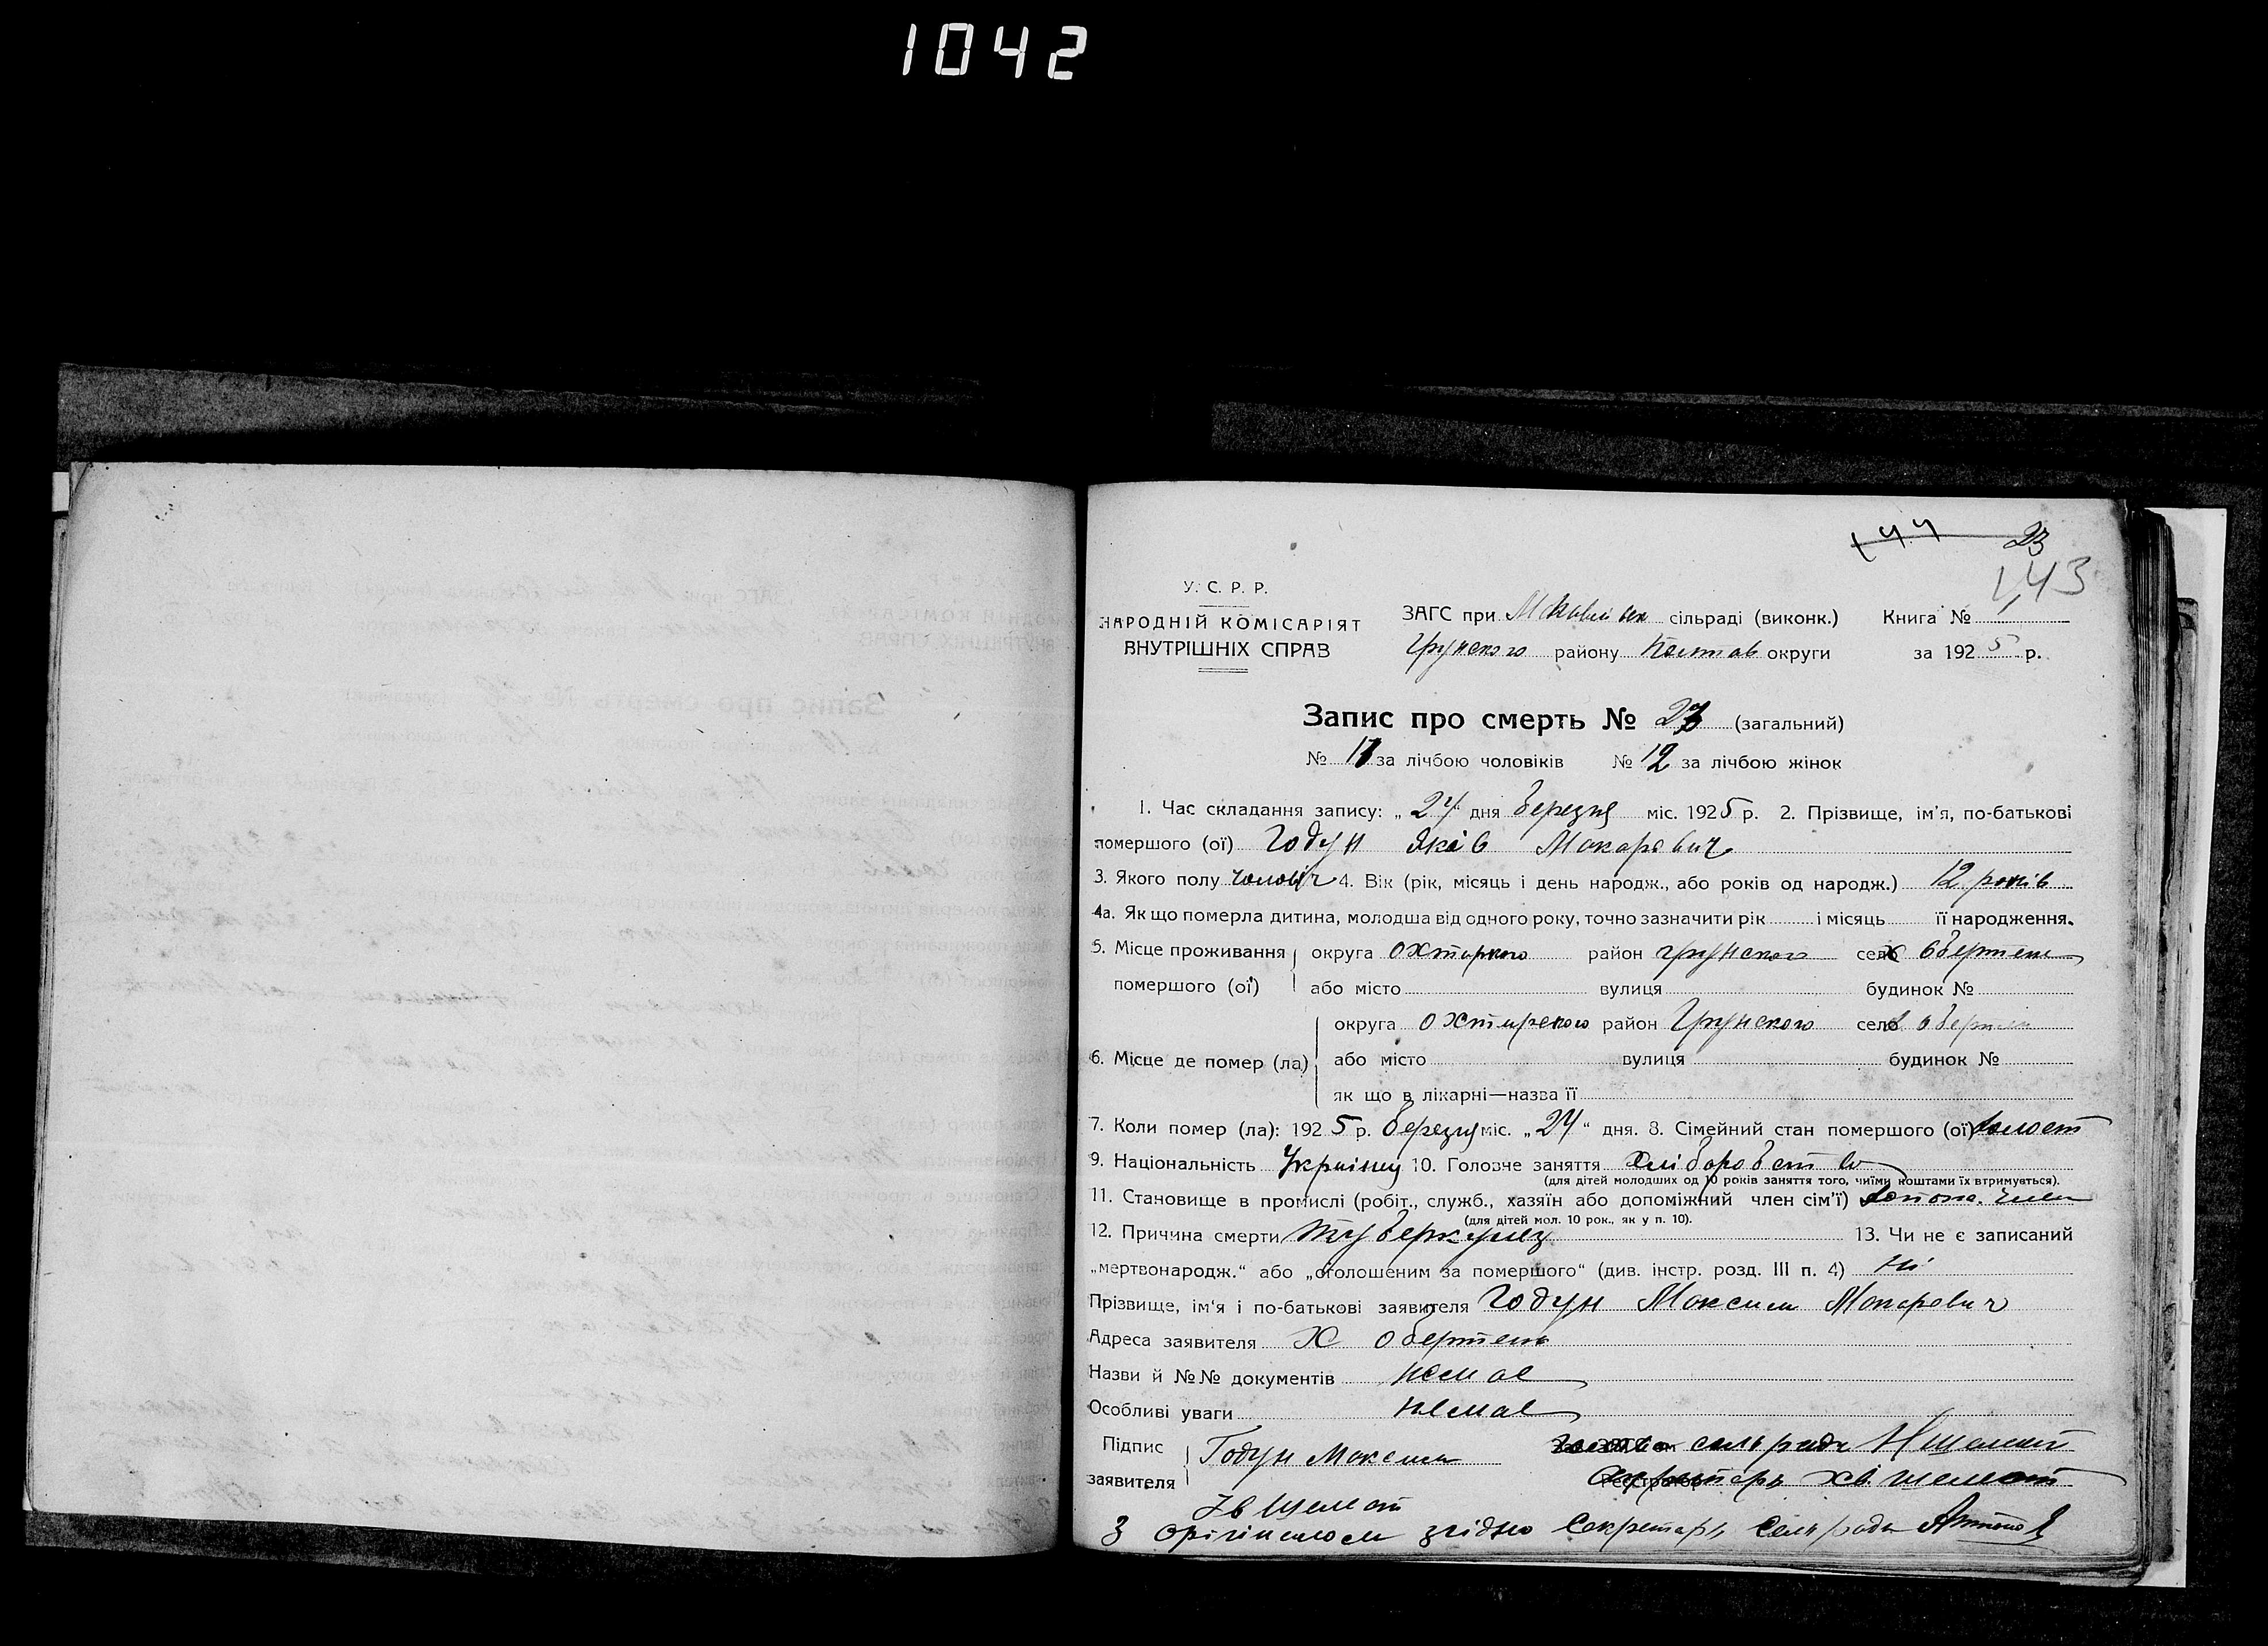 1042
144 23
143
У. С. Р. Р.
НАРОДНІЙ КОМІСАРІЯТ
ВНУТРІШНІХ СПРАВ
ЗАГС при сільраді (виконк.) Книга № 1
Грунского району Полтав округи за 1925 р.
Запис про смерть № 23 (загальний)
№ 11 за лічбою чоловіків № 12 за лічбою жінок
1. Час складання запису: „24 дня березня міс. 1925 р. 2. Прізвище, ім'я, по-батькові
помершого (ої) Годун Яків Макарович
3. Якого полу чоловіч 4. Вік (рік, місяць і день народж., або років од народж.) 12 років
4а. Як що померла дитина, молодша від одного року, точно зазначити рік і місяць її народження.
5. Місце проживання округа Охтиркого район грунского село Обертень
помершого (ої) або місто вулиця будинок №
округа Охтирского район Грунского село
6. Місце де помер (ла) або місто вулиця будинок №
як що в лікарні—назва її
7. Коли помер (ла): 1925 р. березня міс. „24“ дня. 8. Сімейний стан помершого (ої) холост
9. Національність Украінец 10. Головне заняття хліборобство
(для дітей молодших од 10 років заняття того, чиїми коштами їх втримується).
11. Становище в промислі (робіт., служб., хазяїн або допоміжний член сім'ї) допом. член
(для дітей мол. 10 рок., як у п. 10).
12. Причина смерти туберкульз 13. Чи не є записаний
„мертвонародж.“ або „оголошеним за помершого“ (див. інстр. розд. III п. 4) Ні
Прізвище, ім'я і по-батькові заявителя Годун Максим Макарович
Адреса заявителя Х Обертень
Назви й №№ документів немає
Особливі уваги немає
Підпис Годун Максим голова сельради
заявителя секретарь
З орігіналом згідно Секретарь сельради